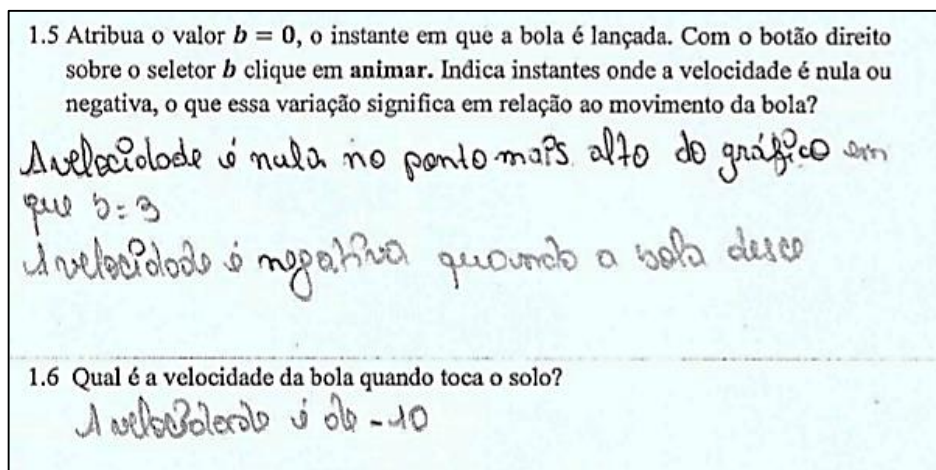 1.5 Atribua o valor b = 0, o instante em que a bola é lançada. Com o botão direito
sobre o seletor b clique em animar. Indica instantes onde a velocidade é nula ou
negativa, o que essa variação significa em relação ao movimento da bola?
A velocidade é nula no ponto mais alto do gráfico em
que b=3
A velocidade é negativa quando a bola desce
1.6 Qual é a velocidade da bola quando toca o solo?
A velocidade é de -10